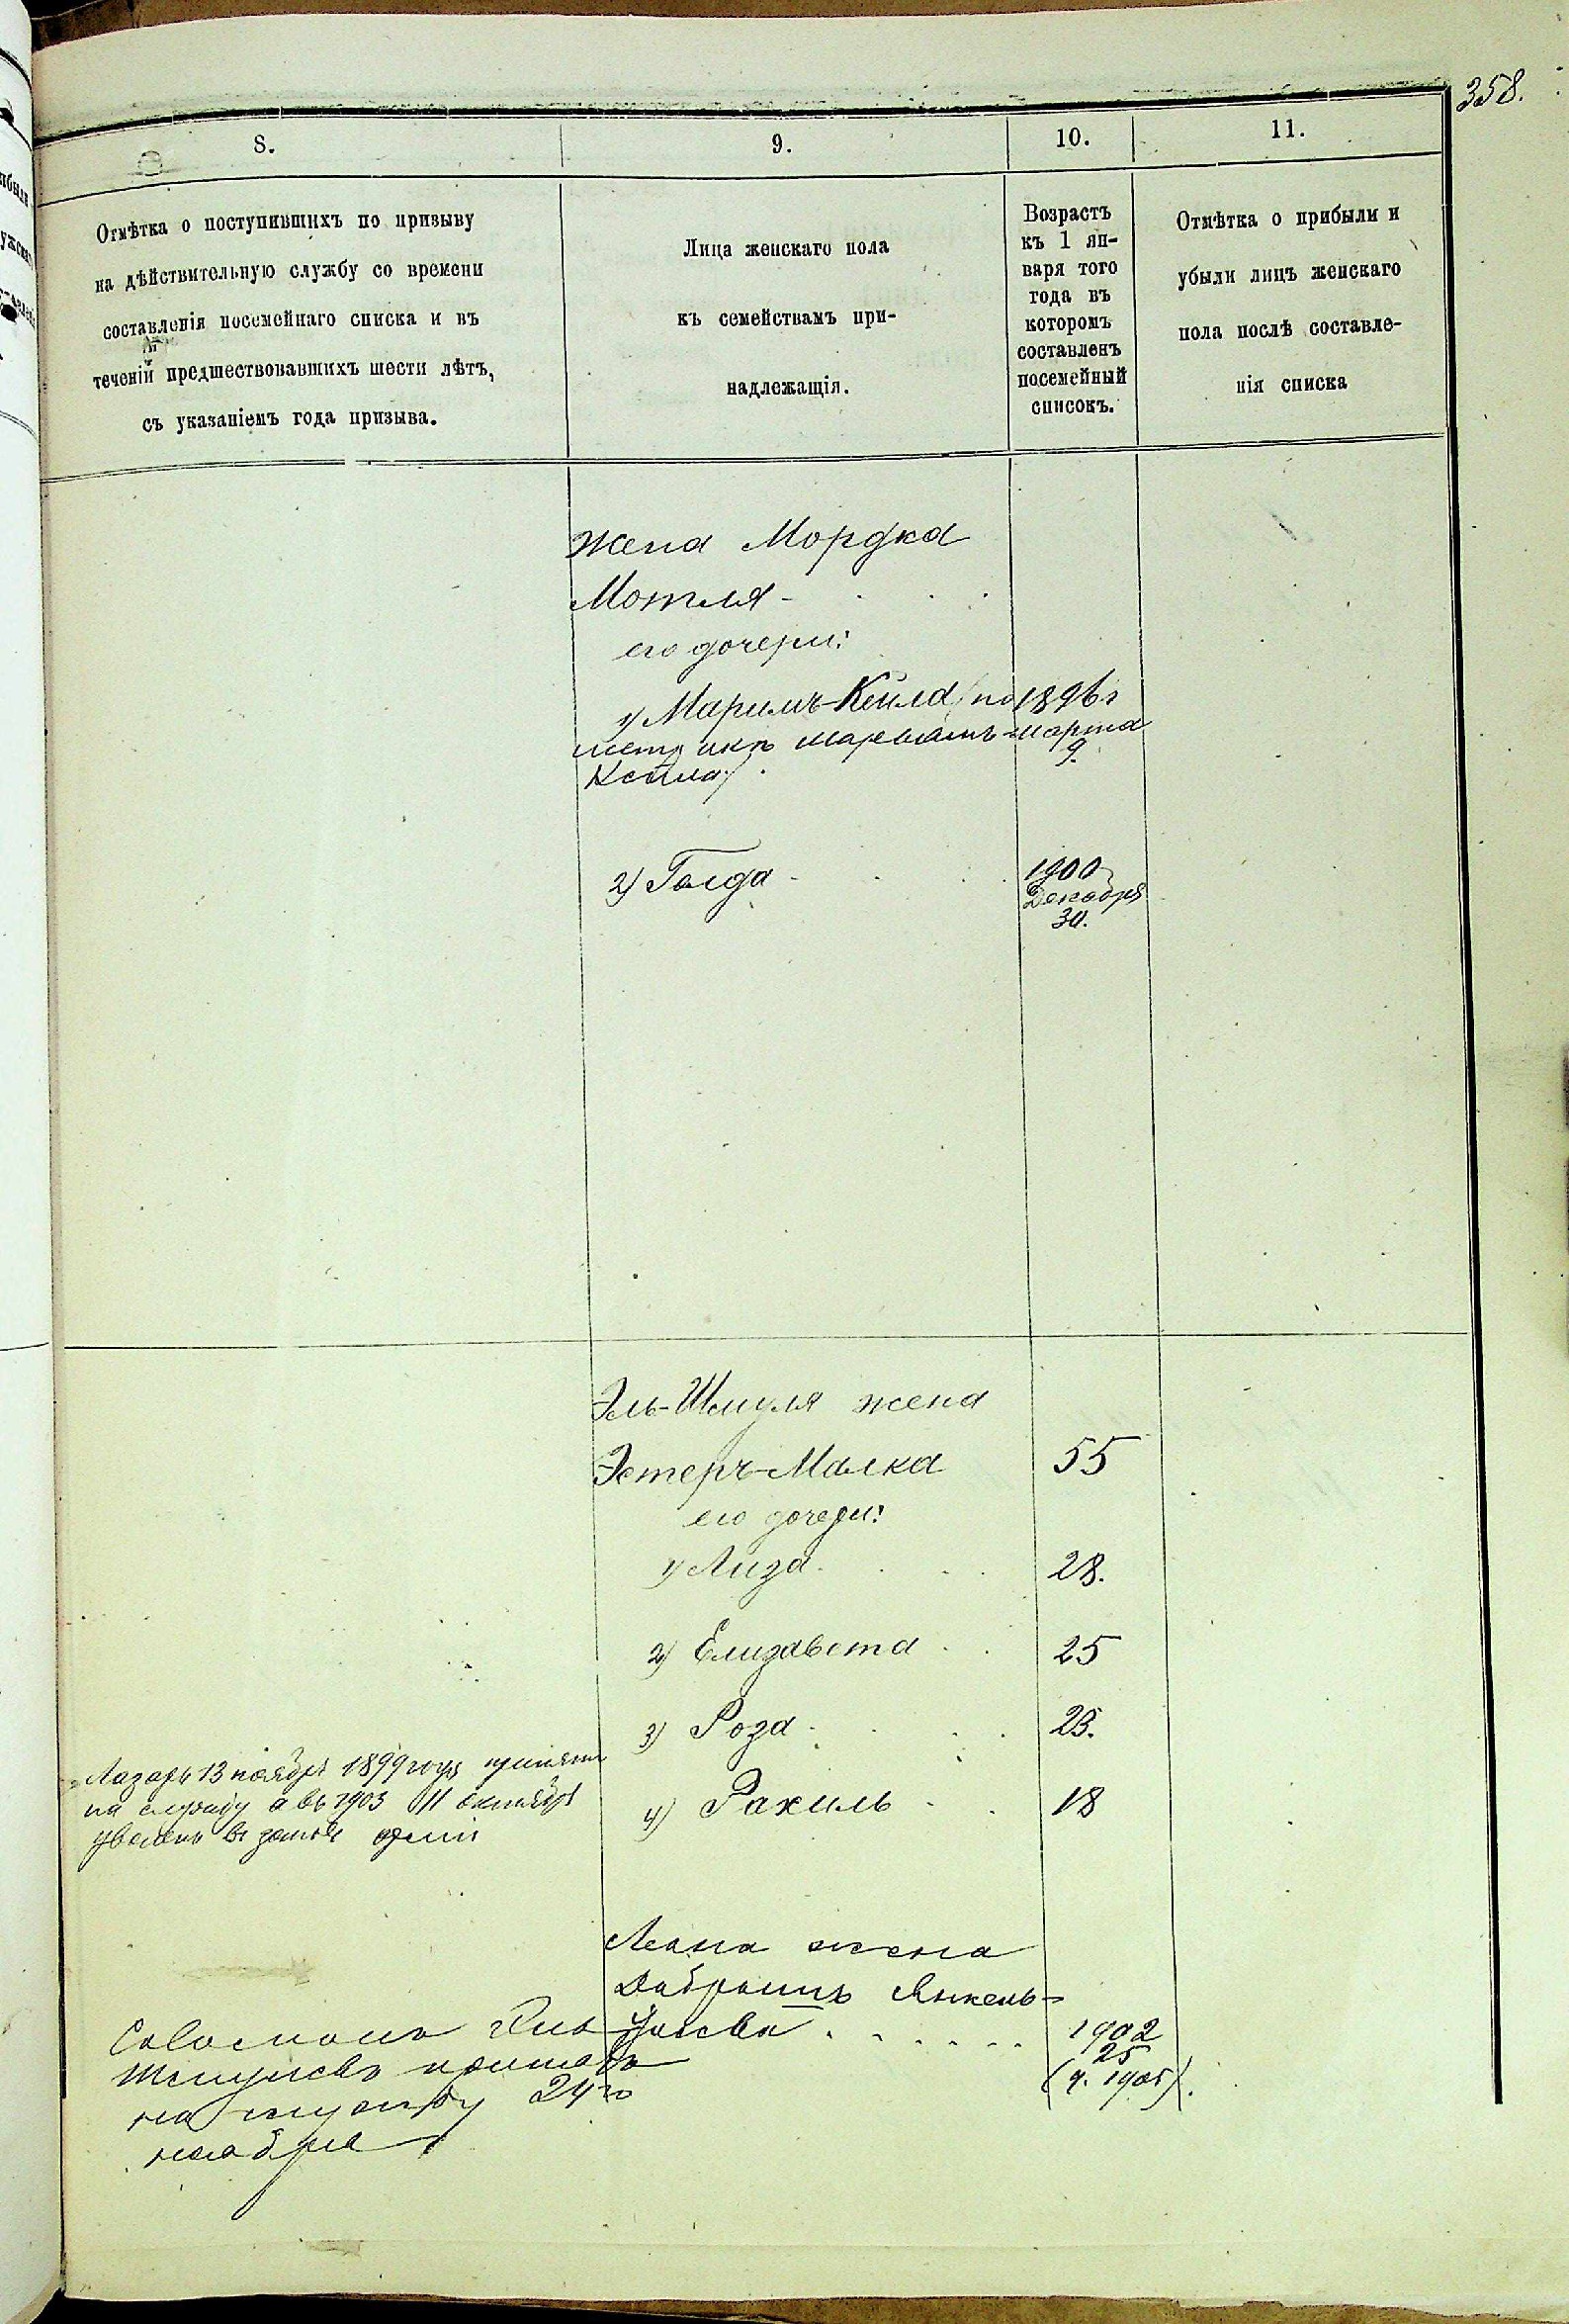 358.
8.
9.
10.
11.
Отмѣтка о поступившихъ по призыву
на дѣйствительную службу со времени
составленія посемейнаго списка и въ
теченіи предшествовавшихъ шести лѣтъ,
съ указаніемъ года призыва.
Лица женскаго пола
къ семействамъ при-
надлежащія.
Возрастъ
къ 1 ян-
варя того
года въ
которомъ
составленъ
посемейный
списокъ.
Отмѣтка о прибыли и
убыли лицъ женскаго
пола послѣ составле-
нія списка
Жена Мордка
Мотля
его дочери:
1) Маримъ-Кейла (по 1896 г
марта
Кейла)
9.
2) Голда
1900
Декабря
30.
Эль-Шмуля жена
Эстеръ-Малка 55
его дочери:
1) Лиза 28.
2) Елизавета 25
3) Роза 23.
4) Рахиль 18
Лазарь 13 ноября 1899 года принятъ
на службу а въ 1903 11 октября
уволенъ въ запасъ арміи
жена
Янкель-
1902
25
(ч. 1905).
Соломонъ
Шмулевъ принятъ
на службу 24го
ноября